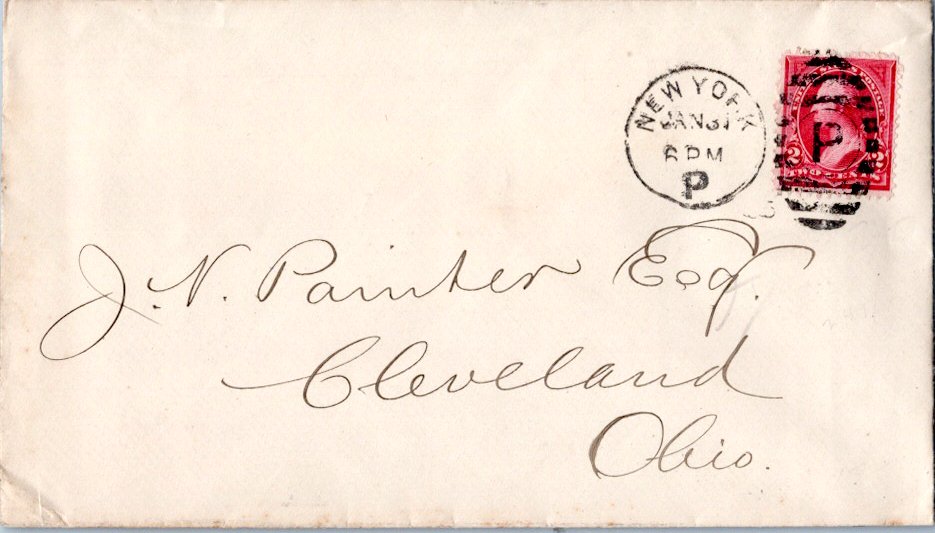 NEW YORK
JAN 31
6 PM
P
P
2 2
TWO CENTS
J. N. Painter Esq.
Cleveland
Ohio.